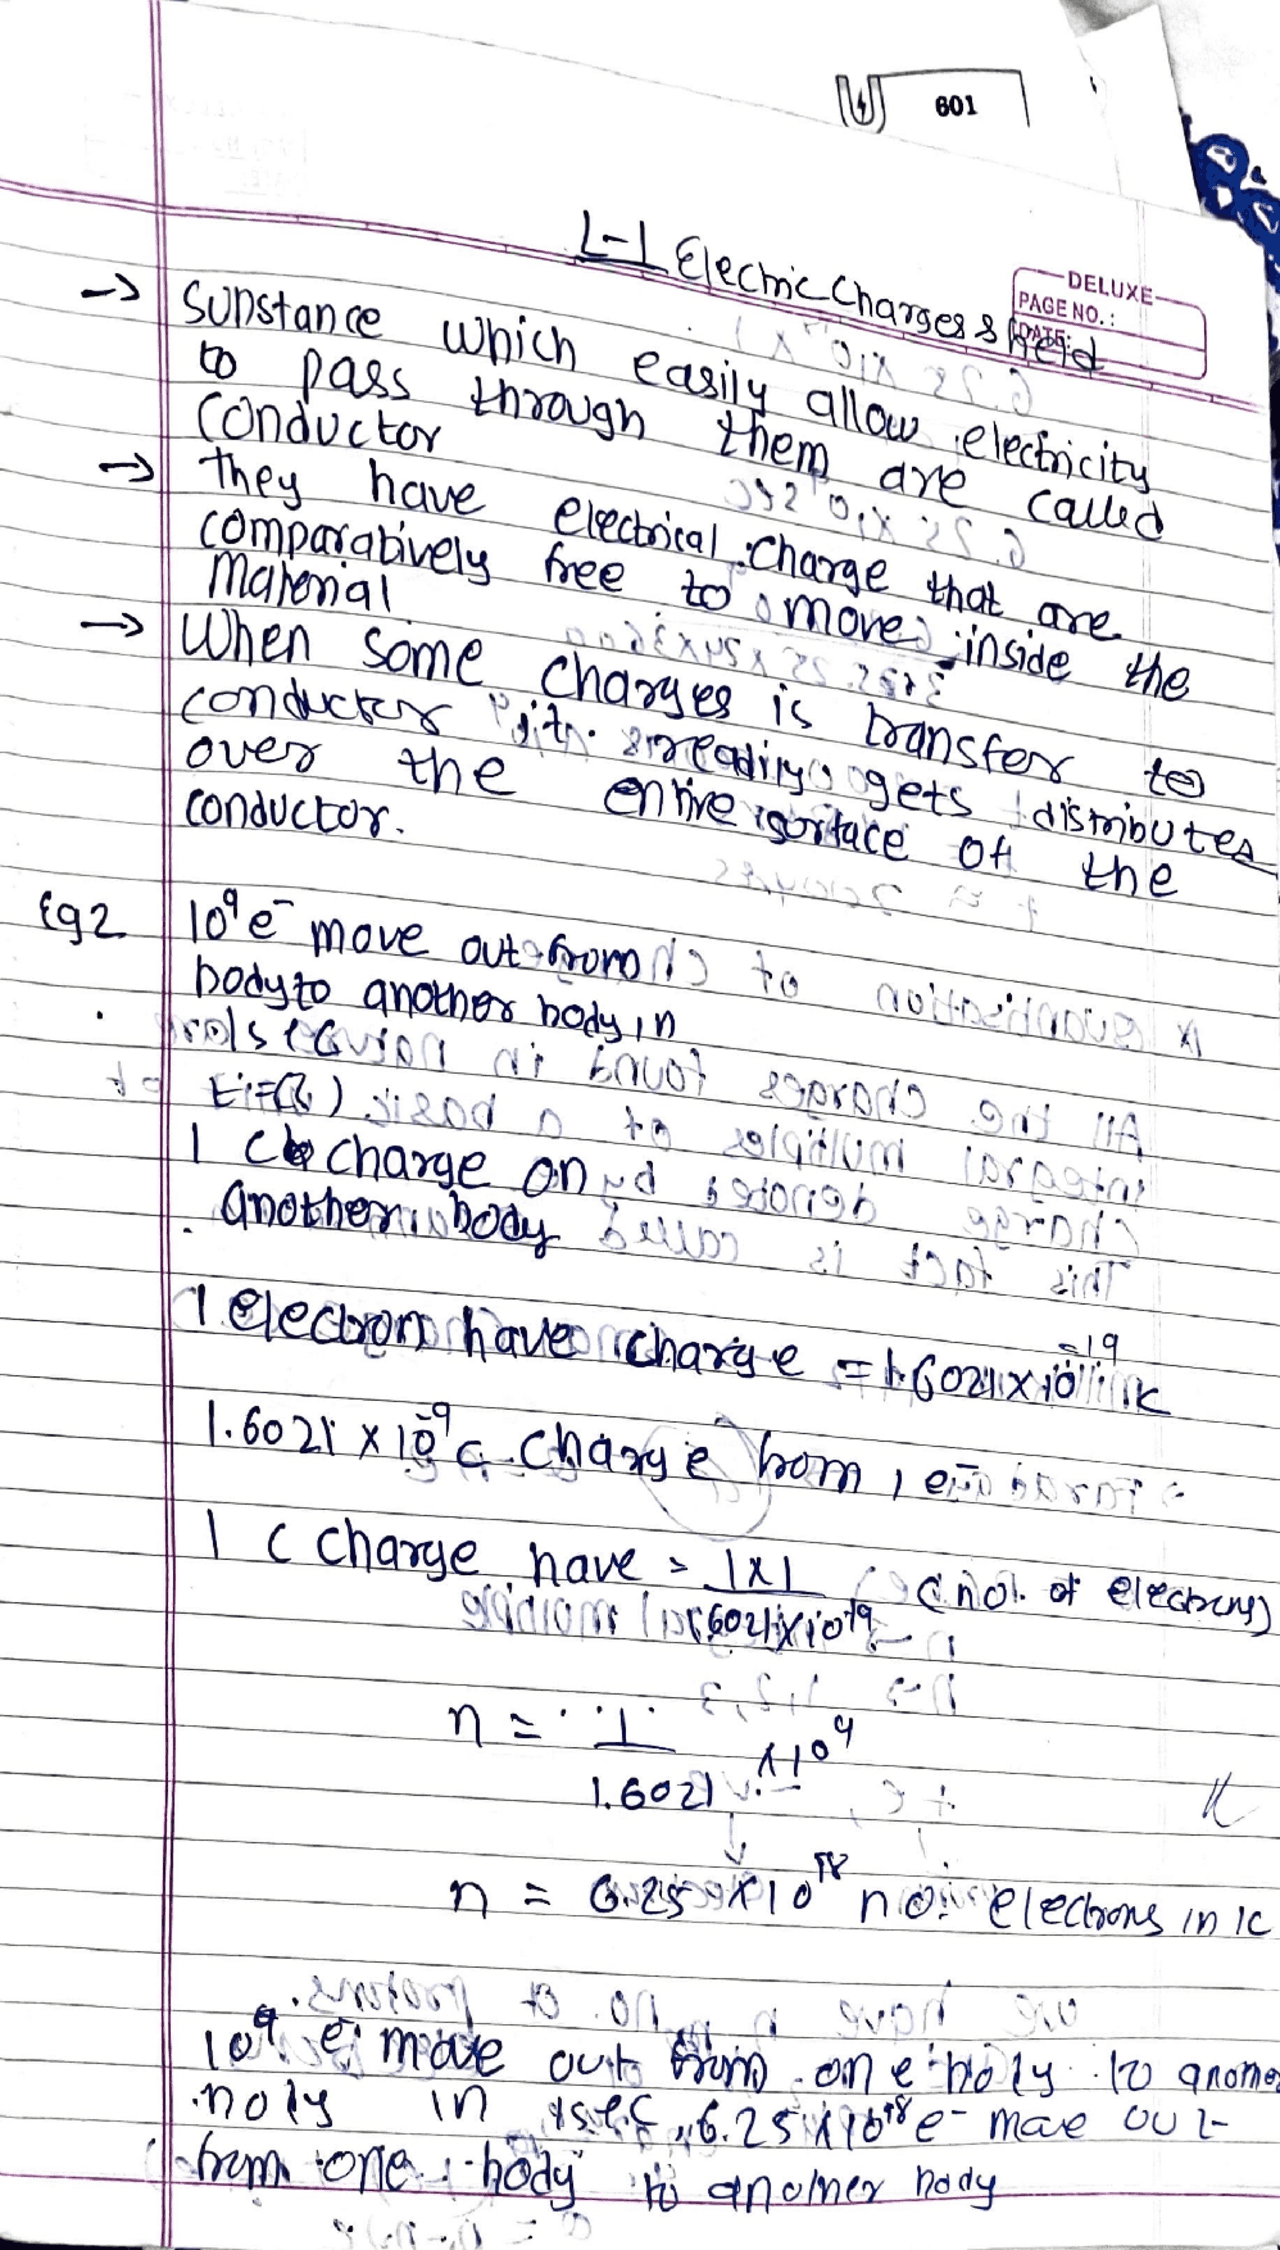 601
L-1 Electric Charges & field
DELUXE
PAGE NO.:
DATE:
→ Substance which easily allow electricity
to pass through them are called
conductor
→ They have electrical charge that are
comparatively free to move inside the
Material
→ When some charges is transfer to
conductor it readily gets distributes
over the entire surface of the
conductor.
Eg 2 10⁹ e⁻ move out from
body to another body in
1 C charge on
another body
1 electron have charge = 1.6021 × 10⁻¹⁹
1.6021 × 10⁻⁹ C charge from 1 e⁻
1 C charge have = 1×1 (no. of electrons)
1.6021×10⁻¹⁹
n = 1
1.6021 ×10⁹
n = 6.25 × 10¹⁸ no. electrons in 1C
10⁹ e⁻ move out from one body to another
body in 1 sec, 6.25 × 10¹⁸ e⁻ move out
from one body to another body